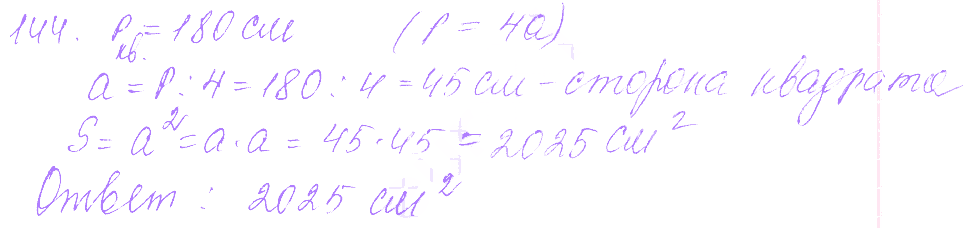 144. Pкв. = 180 см (P = 4a)
a = P : 4 = 180 : 4 = 45 см - сторона квадрата
S = a² = a · a = 45 · 45 = 2025 см²
Ответ : 2025 см²